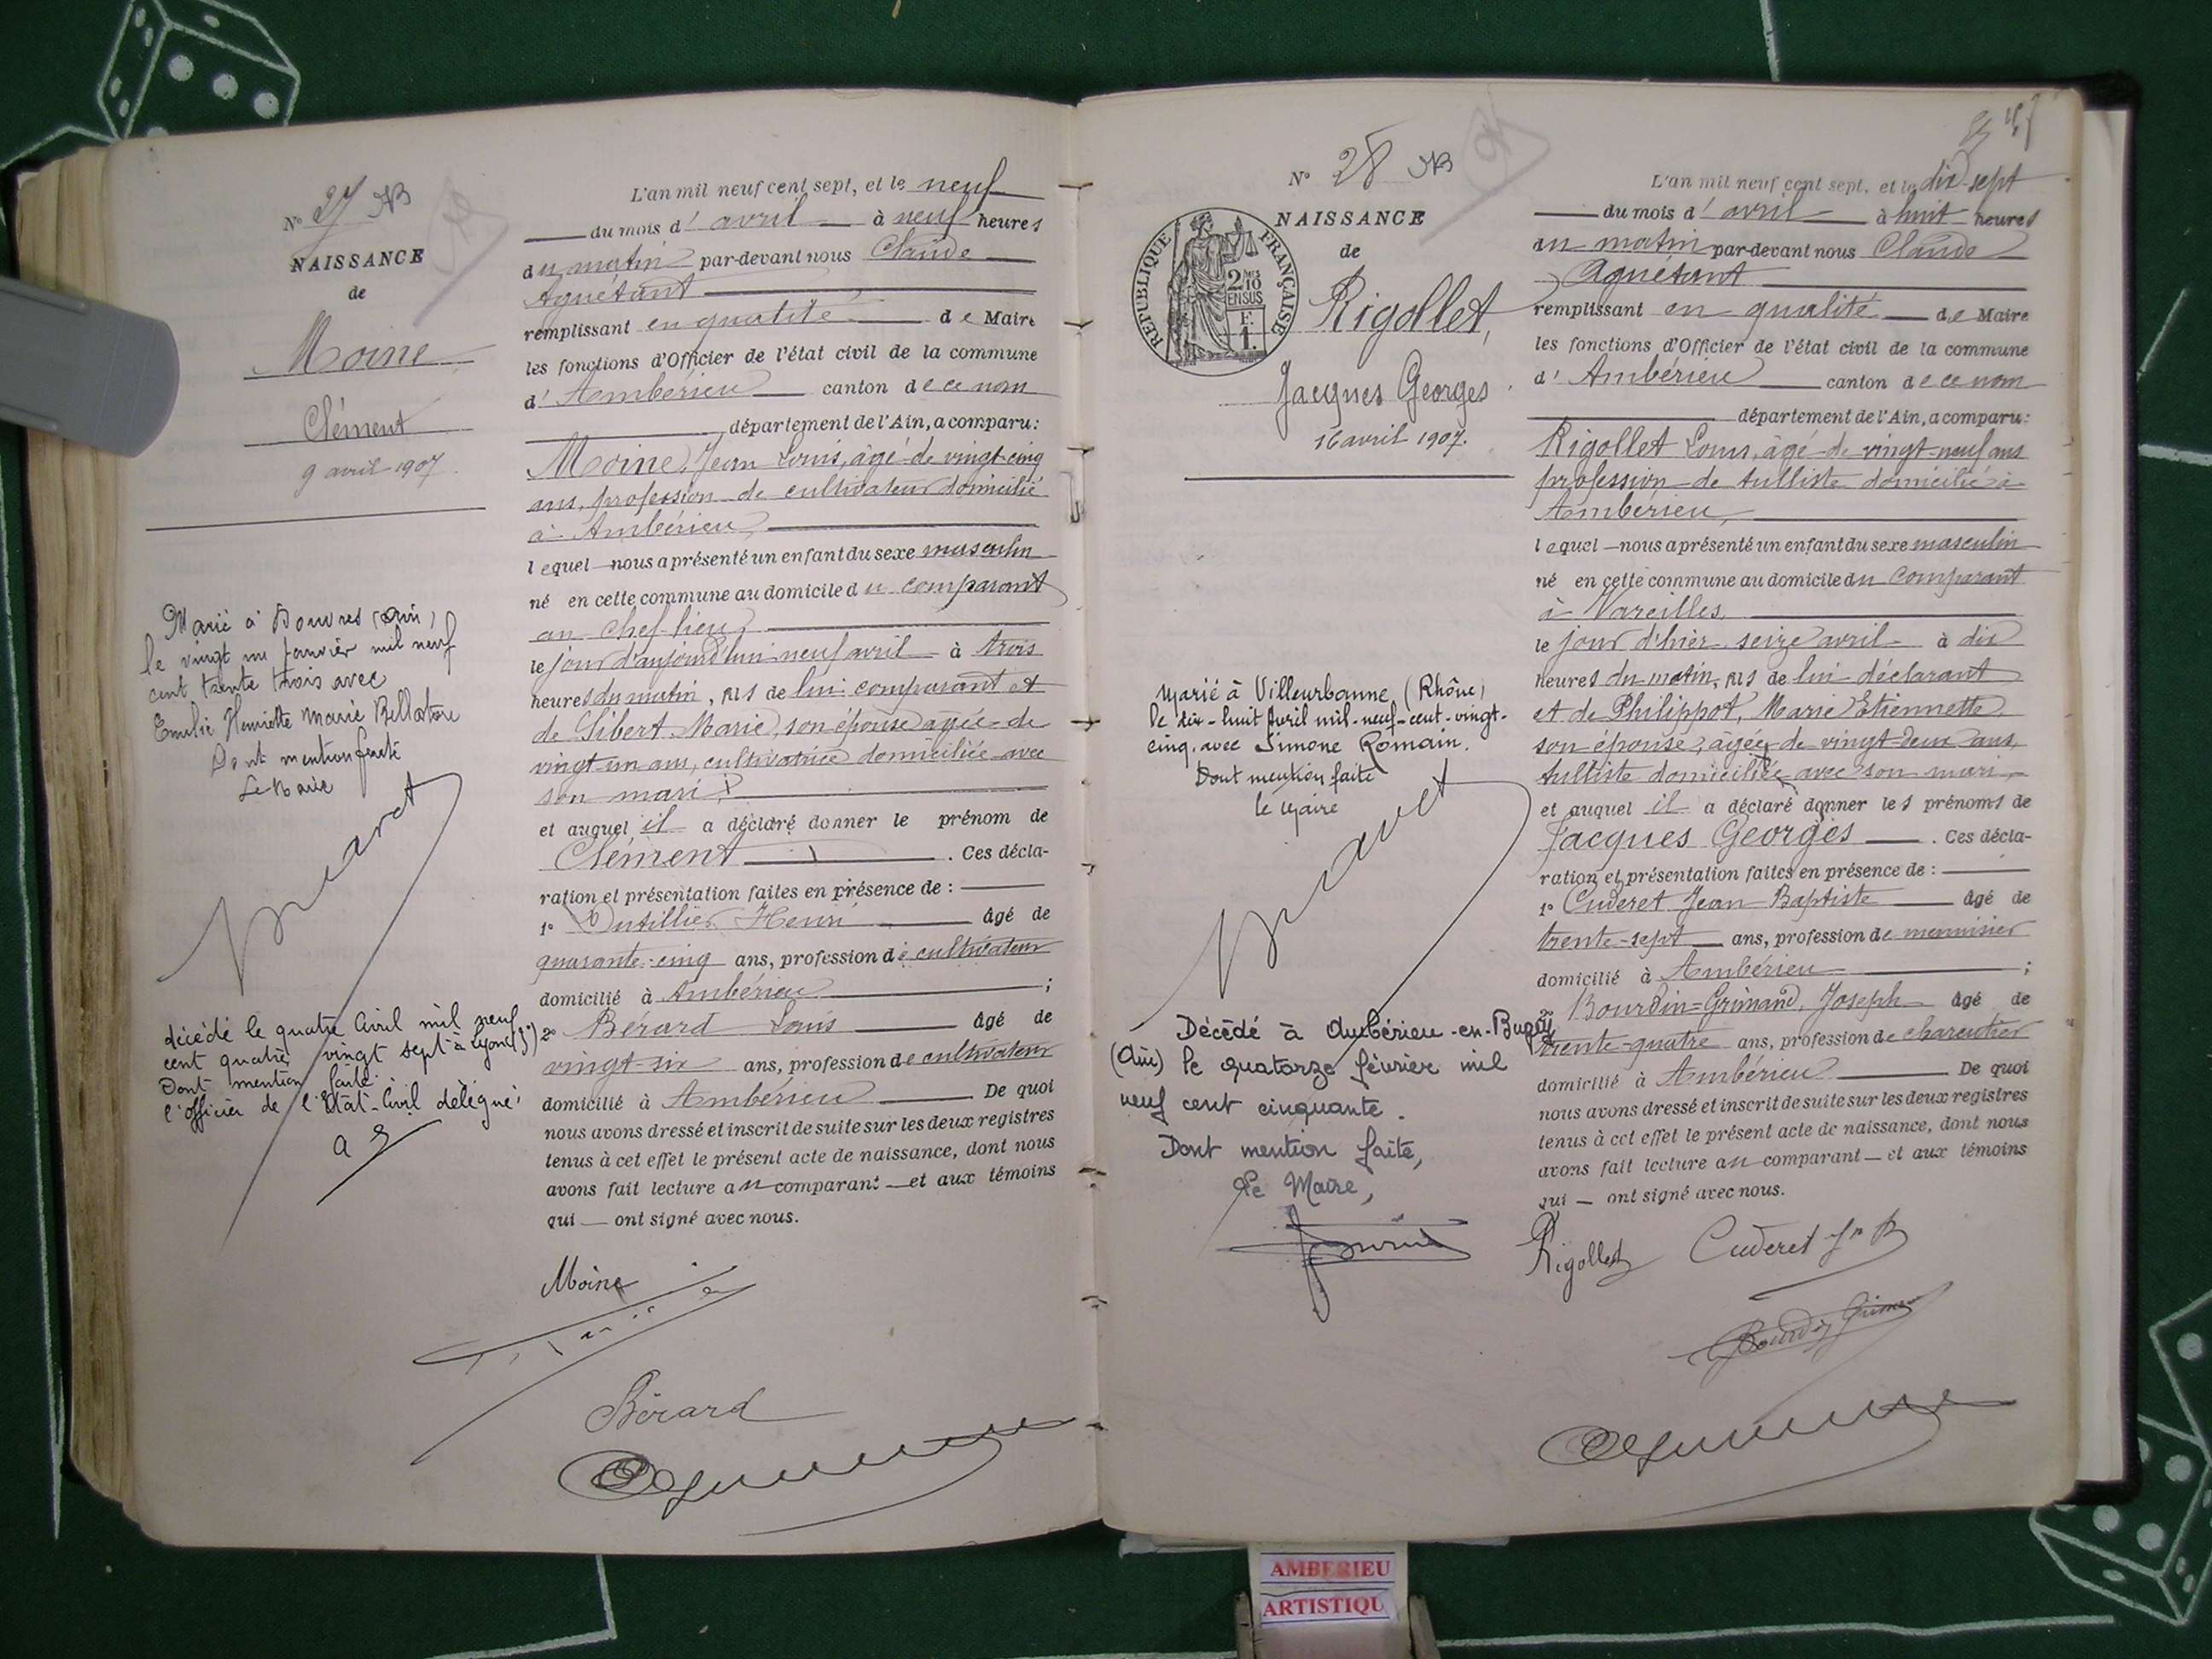 N° 27 NB
NAISSANCE
de
Moine
Clément
9 avril 1907.
Marié à Douvres (Ain)
le vingt un Janvier mil neuf
cent trente trois avec
Emilie Henriette Marie
Dont mention faite
Le Maire
décédé le quatre Avril mil neuf
cent quatre vingt sept à Lyon (3°)
Dont mention faite.
l'officier de l'Etat-Civil délégué.
L'an mil neuf cent sept, et le neuf
du mois d' avril à neuf heures
du matin par-devant nous Claude
Aguétant
remplissant en qualité de Maire
les fonctions d'Officier de l'état civil de la commune
d' Ambérieu canton de ce nom
département de l'Ain, a comparu:
Moine, Jean Louis, âgé de vingt-cinq
ans, profession de cultivateur domicilié
à Ambérieu,
lequel nous a présenté un enfant du sexe masculin
né en cette commune au domicile du comparant
au chef-lieu,
le jour d'aujourd'hui neuf avril à trois
heures du matin, fils de lui comparant et
de Sibert Marie, son épouse âgée de
vingt-un ans, cultivatrice domiciliée avec
son mari,
et auquel il a déclaré donner le prénom de
Clément. Ces décla-
ration et présentation faites en présence de :
1° Dutillier Henri âgé de
quarante-cinq ans, profession de cultivateur
domicilié à Ambérieu ;
2° Bérard Louis âgé de
vingt-six ans, profession de cultivateur
domicilié à Ambérieu De quoi
nous avons dressé et inscrit de suite sur les deux registres
tenus à cet effet le présent acte de naissance, dont nous
avons fait lecture au comparant et aux témoins
qui ont signé avec nous.
Moine
Bérard
N° 28 NB
REPUBLIQUE FRANÇAISE
2/10
EN SUS
NAISSANCE
de
Rigollet,
Jacques Georges
16 avril 1907.
Marié à Villeurbanne (Rhône)
le dix-huit Avril mil-neuf-cent-vingt-
cinq, avec Simone Romain.
Dont mention faite
le Maire
Décédé à Ambérieu-en-Bugey
(Ain) le quatorze février mil
neuf cent cinquante.
Dont mention faite,
Le Maire,
L'an mil neuf cent sept, et le dix-sept
du mois d' avril à huit heures
du matin par-devant nous Claude
Aguétant
remplissant en qualité de Maire
les fonctions d'Officier de l'état civil de la commune
d' Ambérieu canton de ce nom
département de l'Ain, a comparu:
Rigollet Louis, âgé de vingt-neuf ans
profession de tulliste domicilié à
Ambérieu,
lequel nous a présenté un enfant du sexe masculin
né en cette commune au domicile du comparant
à Vareilles,
le jour d'hier seize avril à dix
heures du matin, fils de lui déclarant
et de Philippot, Marie Etiennette,
son épouse, âgée de vingt-deux ans,
tulliste domiciliée avec son mari,
et auquel il a déclaré donner les prénoms de
Jacques Georges. Ces décla-
ration et présentation faites en présence de :
1° Cuderet Jean Baptiste âgé de
trente-sept ans, profession de menuisier
domicilié à Ambérieu ;
2° Bourdin=Grimand, Joseph âgé de
trente-quatre ans, profession de charcutier
domicilié à Ambérieu De quoi
nous avons dressé et inscrit de suite sur les deux registres
tenus à cet effet le présent acte de naissance, dont nous
avons fait lecture au comparant et aux témoins
qui ont signé avec nous.
Rigollet Cuderet Jn B
AMBERIEU
ARTISTIQU